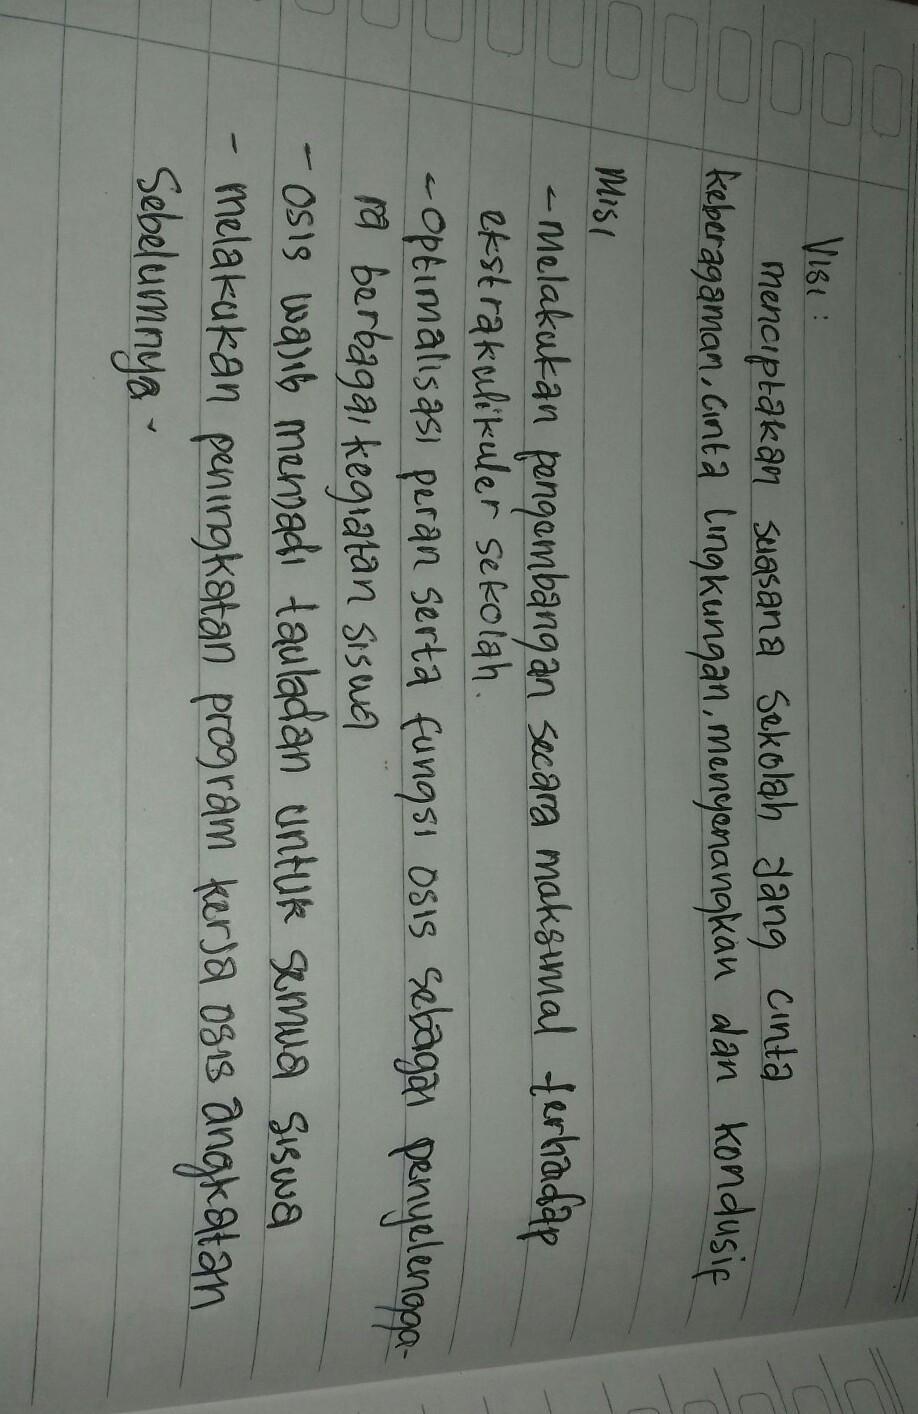 Visi :
menciptakan suasana sekolah yang cinta
keberagaman, cinta lingkungan, menyenangkan dan kondusif
Misi
- melakukan pengembangan secara maksimal terhadap
ekstrakulikuler sekolah.
- Optimalisasi peran serta fungsi osis sebagai penyelengga-
ra berbagai kegiatan siswa
- osis wajib menjadi tauladan untuk semua siswa
- melakukan peningkatan program kerja osis angkatan
Sebelumnya.